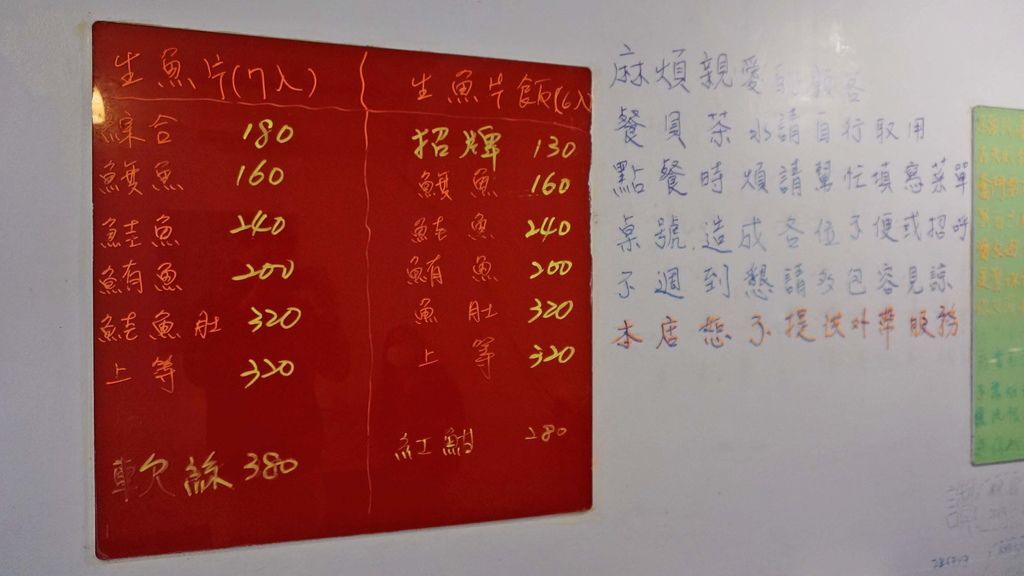 生魚片(7入)
綜合 180
鱆魚 160
鮭魚 240
鮪魚 200
鮭魚肚 320
上等 320
軟絲 380
生魚片飯(6入)
招牌 130
魚 160
鮭魚 240
鮪魚 200
魚肚 320
上等 320
紅魽 280
麻煩親愛 顧客
餐具茶水請自行取用
點餐時煩請幫忙填寫菜單
桌號.造成各位不便或招呼
不週到懇請多包容見諒
本店恕不提供外帶服務